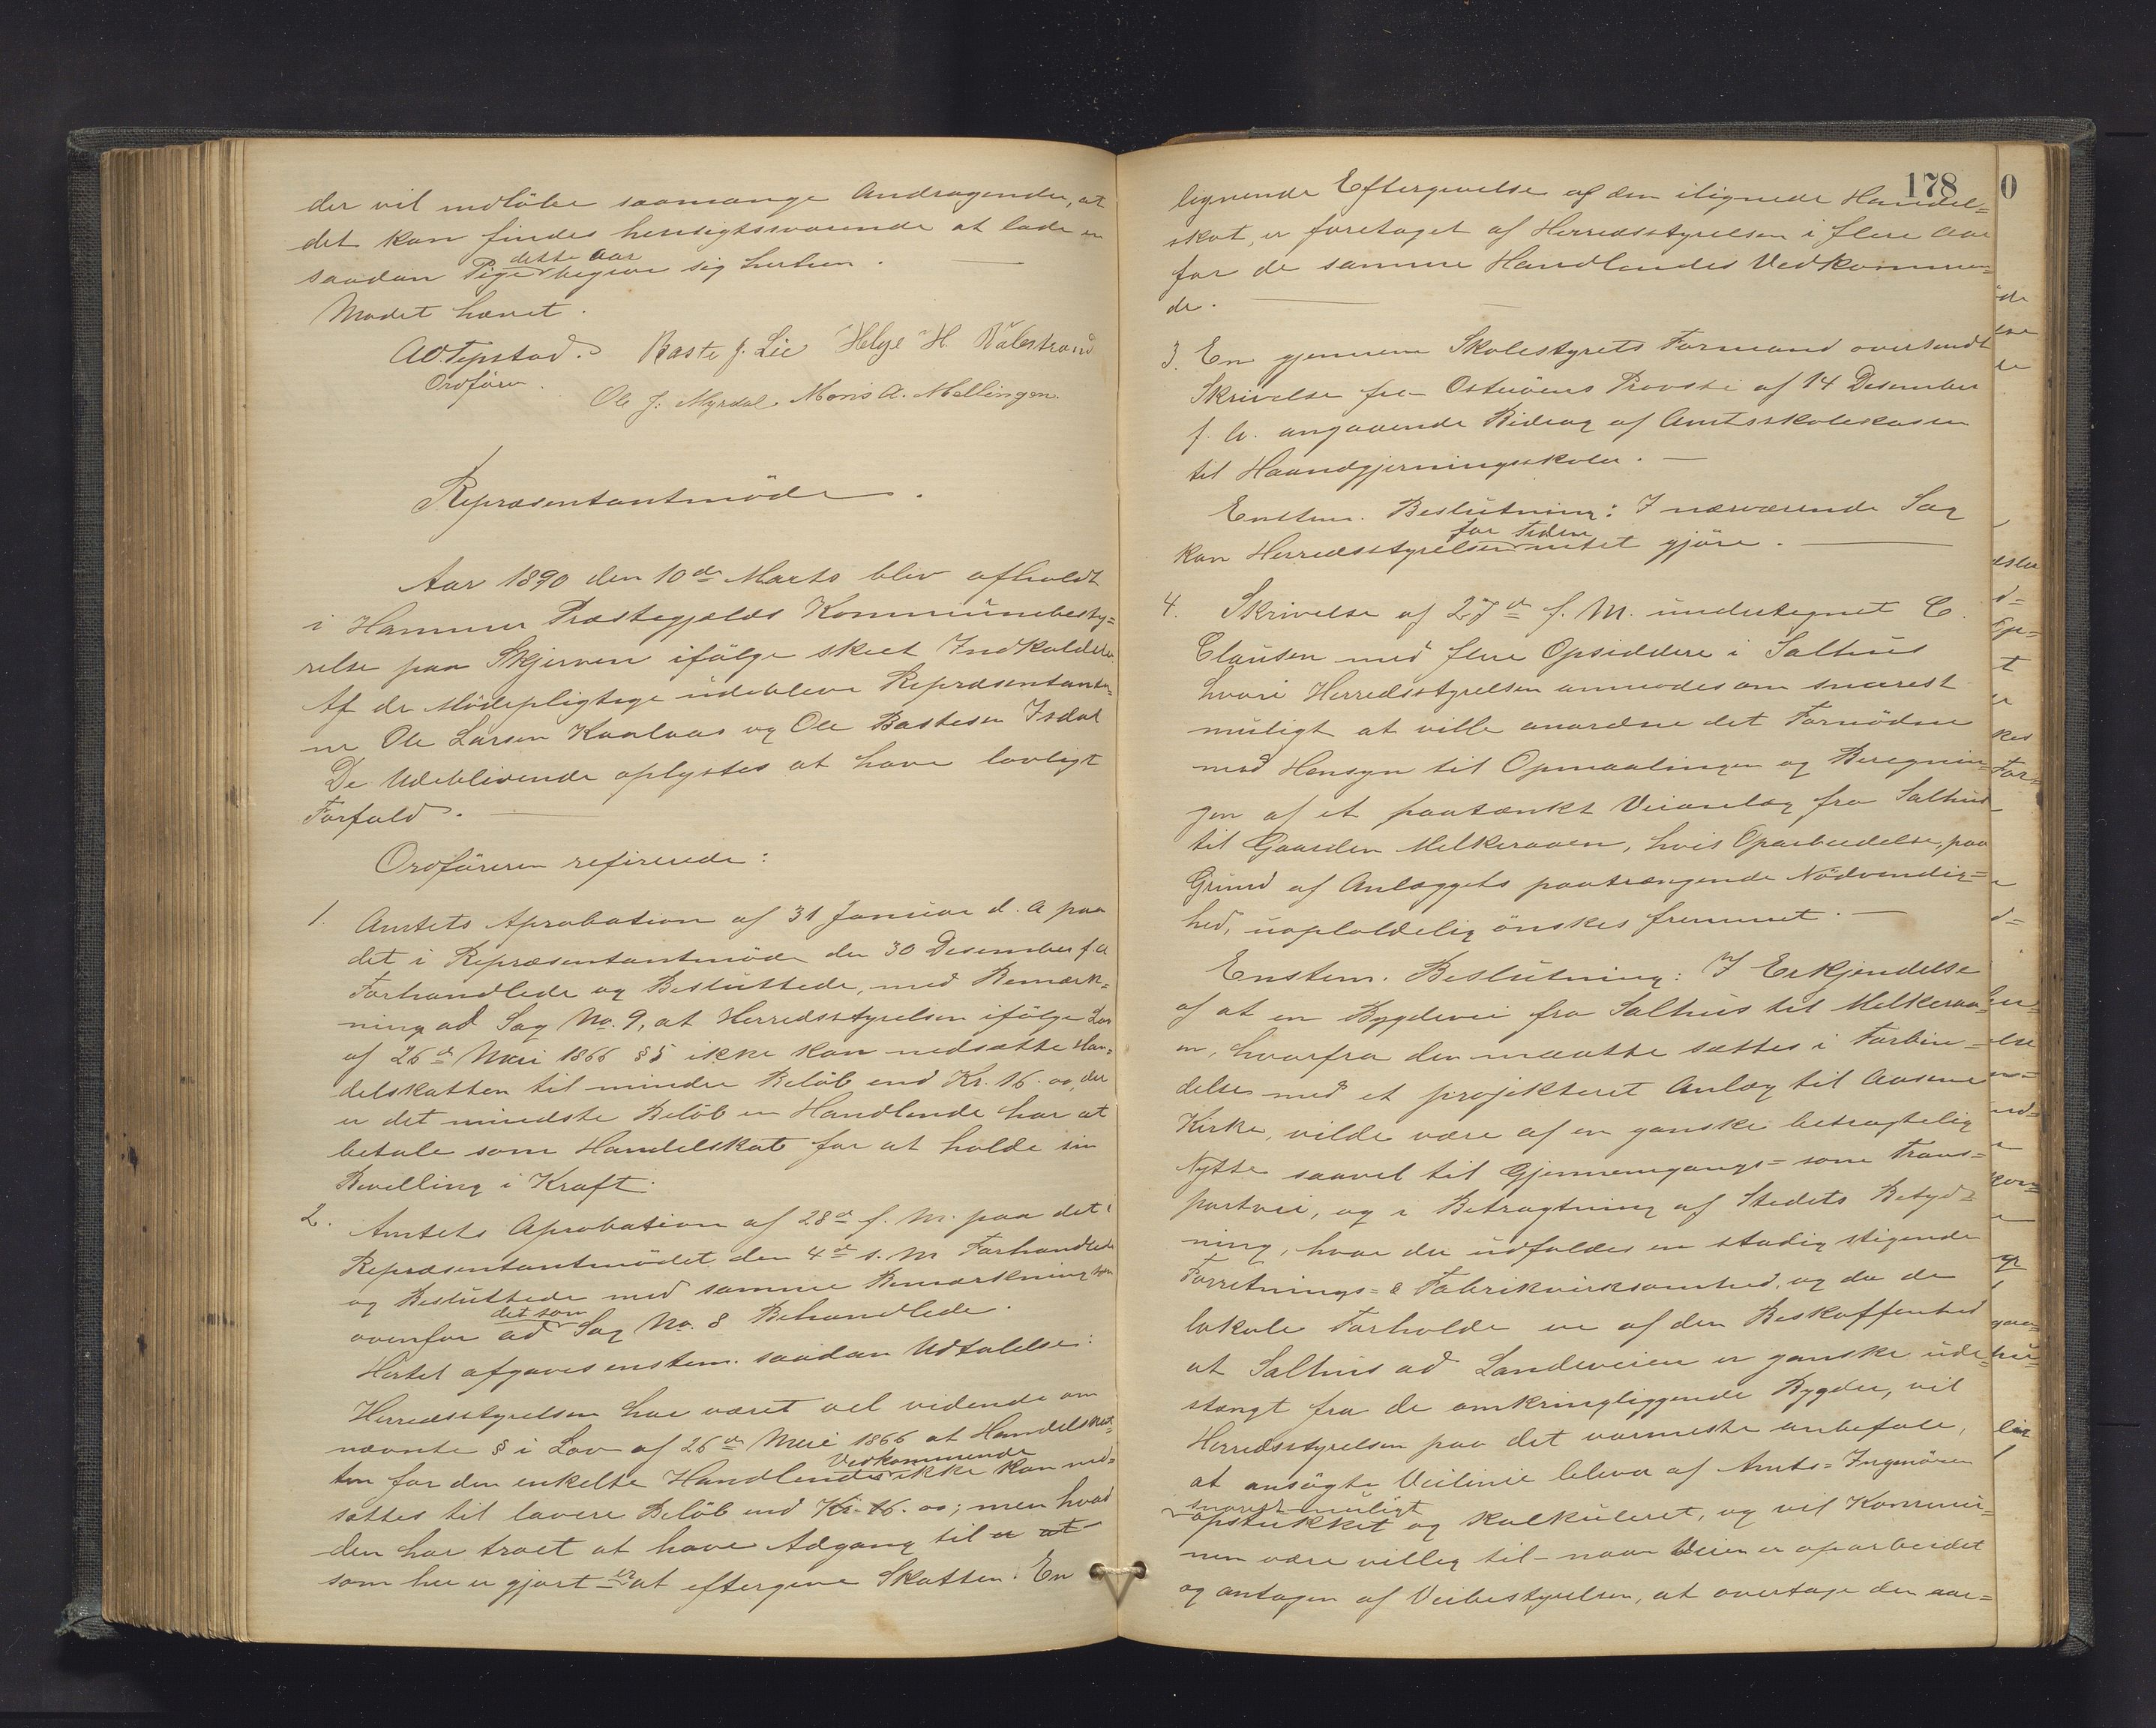 der vil indløbe saamange Andragender, at
det kan findes hensigtssvarende at lade en
saadan Pige dette Aar begive sig herhen.
Mødet hævet.
Ad. Tepstad. Baste J. Lie Helge H. Balestrand
Ordfører.
Ole J. Myrdal. Mons A. Mellingen.
Repræsentantmöde.
Aar 1890 den 10de Marts blev afholdt
i Hammer Præstegjælds Kommunebesty=
relse paa Skjerven ifölge skeet Indkaldelse.
Af de Mödepligtige udebleve Repræsentanter=
ne Ole Larsen Kaalaas og Ole Bastesen Isdal
De Udeblivende oplystes at have lovligt
Forfald.
Ordföreren refirerede:
1. Amtets Aprobation af 31 Januar d. A paa
det i Repræsentantmöde den 30 Desember f. A
Forhandlede og Besluttede, med Bemærk=
ning ad Sag No. 9, at Herredsstyrelsen ifölge Lov
af 26de Mai 1866 § 5 ikke kan nedsætte Han=
delskatten til mindre Belöb end Kr. 16.00, der
er det mindste Belöb en Handlende har at
betale som Handelskat for at holde sin
Bevilling i Kraft.
2. Amtets Aprobation af 28de f. M. paa det i
Repræsentantmödet den 4de s. M Forhandlede
og Besluttede med samme Bemærkning som
ovenfor det som ad Sag No. 8 Behandlede.
Hertil afgaves enstem. saadan Udtalelse:
Herredsstyrelsen har været vel vidende om
nævnte § i Lov af 26de Mai 1866 at Handelsskat=
ten for den enkelte Handlendes Vedkommende ikke kan ned=
sættes til lavere Belöb end Kr. 16.00; men hvad
den har troet at have Adgang til er at
som her er gjort er at eftergive Skatten. En
178
lignende Eftergivelse af den ilignede Handel=
skat, er foretaget af Herredsstyrelsen i flere Aar
for de samme Handlendes Vedkommen=
de.
3. En gjennem Skolestyrets Formand oversendt
Skrivelse fra Osteröens Provsti af 14 Desember
f. A. angaaende Bidrag af Amtsskolekassen
til Haandgjerningsskoler.
Enstem. Beslutning: I nærværende Sag
kan Herredsstyrelsen for tiden intet gjöre.
4. Skrivelse af 27de f. M. undertegnet C.
Clausen med flere Opsiddere i Salhus
hvori Herredsstyrelsen anmodes om snarest
muligt at ville anordne det Fornödne
med Hensyn til Opmaalingen og Beregnin=
gen af et paatænkt Veianlæg fra Salhus
til Gaarden Melkeraaen, hvis Oparbeidelse, paa
Grund af Anlæggets paatrængende Nödvendig=
hed, uopholdelig önskes fremmet.
Enstem. Beslutning: I Erkjendelse
af at en Bygdevei fra Salhus til Melkeraa=
en, hvorfra den maatte sættes i Forbin=
delse med et projekteret Anlæg til Aasene
Kirke, vilde være af en ganske betragtelig
Nytte saavel til Gjennemgangs= som Trans=
portvei, og i Betragtning af Stedets Betyd=
ning, hvor der udfoldes en stadig stigende
Forretnings= & Fabrikvirksomhed, og da de
lokale Forholde ere af den Beskaffenhed
at Salhus ad Landeveien er ganske ude=
stængt fra de omkringliggende Bygder, vil
Herredsstyrelsen paa det varmeste anbefale,
at ansögte Veilinie bliver af Amts=Ingeniören
snarest muligt opstukket og kalkuleret, og vil Kommu=
nen være villig til – naar Veien er oparbeidet
og antagen af Veibestyrelsen, at overtage den aar=